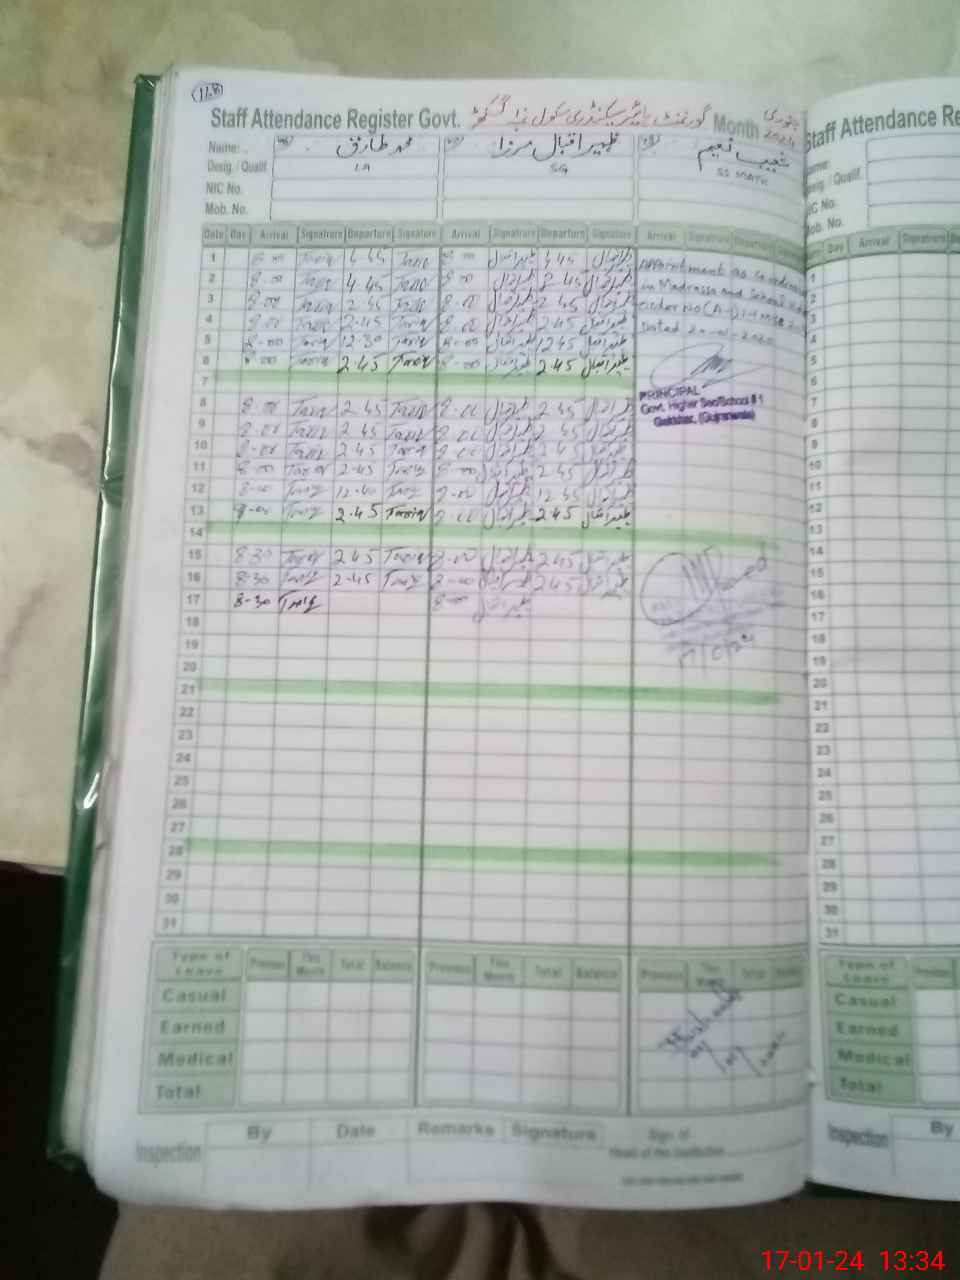 128
Staff Attendance Register Govt. گورنمنٹ ہائیر سیکنڈری سکول نمبر 1 گکھڑ Month جنوری 2024
Name: محمد طارق ظہیر اقبال مرزا شعیب نعیم
Desig. / Qualif. LA SG SS MATH
NIC No.
Mob. No.
Date Day Arrival Signature Departure Signature Arrival Signature Departure Signature Arrival Signature Departure
1 8-00 Tariq 4 45 Tariq 8-00 ظہیر اقبال 4 45 ظہیر اقبال
2 8-00 Tariq 4 45 Tariq 8-00 ظہیر اقبال 2 45 ظہیر اقبال
3 8-00 Tariq 2 45 Tariq 8-00 ظہیر اقبال 2 45 ظہیر اقبال
4 8-00 Tariq 2-45 Tariq 8-00 ظہیر اقبال 2 45 ظہیر اقبال
5 8-00 Tariq 12-30 Tariq 8-00 ظہیر اقبال 12 45 ظہیر اقبال
6 8-00 Tariq 2.45 Tariq 8-00 ظہیر اقبال 2.45 ظہیر اقبال
7
8 8-00 Tariq 2-45 Tariq 8-00 ظہیر اقبال 2 45 ظہیر اقبال
9 8-00 Tariq 2 45 Tariq 8-00 ظہیر اقبال 2 45 ظہیر اقبال
10 8-00 Tariq 2.45 Tariq 8-00 ظہیر اقبال 2 45 ظہیر اقبال
11 8-00 Tariq 2-45 Tariq 8-00 ظہیر اقبال 2 45 ظہیر اقبال
12 8-00 Tariq 12-40 Tariq 8-00 ظہیر اقبال 12 45 ظہیر اقبال
13 8-00 Tariq 2.45 Tariq 8-00 ظہیر اقبال 2.45 ظہیر اقبال
14
15 8-30 Tariq 2.45 Tariq 8-00 ظہیر اقبال 2.45 ظہیر اقبال
16 8-30 Tariq 2-45 Tariq 8-00 ظہیر اقبال 2.45 ظہیر اقبال
17 8-30 Tariq 8-00 ظہیر اقبال
18
19
20
21
22
23
24
25
26
27
28
29
30
31
Appointment as
in Madrassa and School
order No
Dated
PRINCIPAL
Govt. Higher Sec/School # 1
Gakkhar, (Gujranwala)
Type of Leave Previous This Month Total Balance Previous This Month Total Balance Previous This Month Total
Casual
Earned
Medical
Total
Inspection By Date Remarks Signature Sign. of
Head of the Institution
Staff Attendance Re
Name:
Desig. / Qualif.
NIC No.
Mob. No.
Day Arrival Signature
1
2
3
4
5
6
7
8
9
10
11
12
13
14
15
16
17
18
19
20
21
22
23
24
25
26
27
28
29
30
31
Type of Leave Previous
Casual
Earned
Medical
Total
Inspection By
17-01-24 13:34